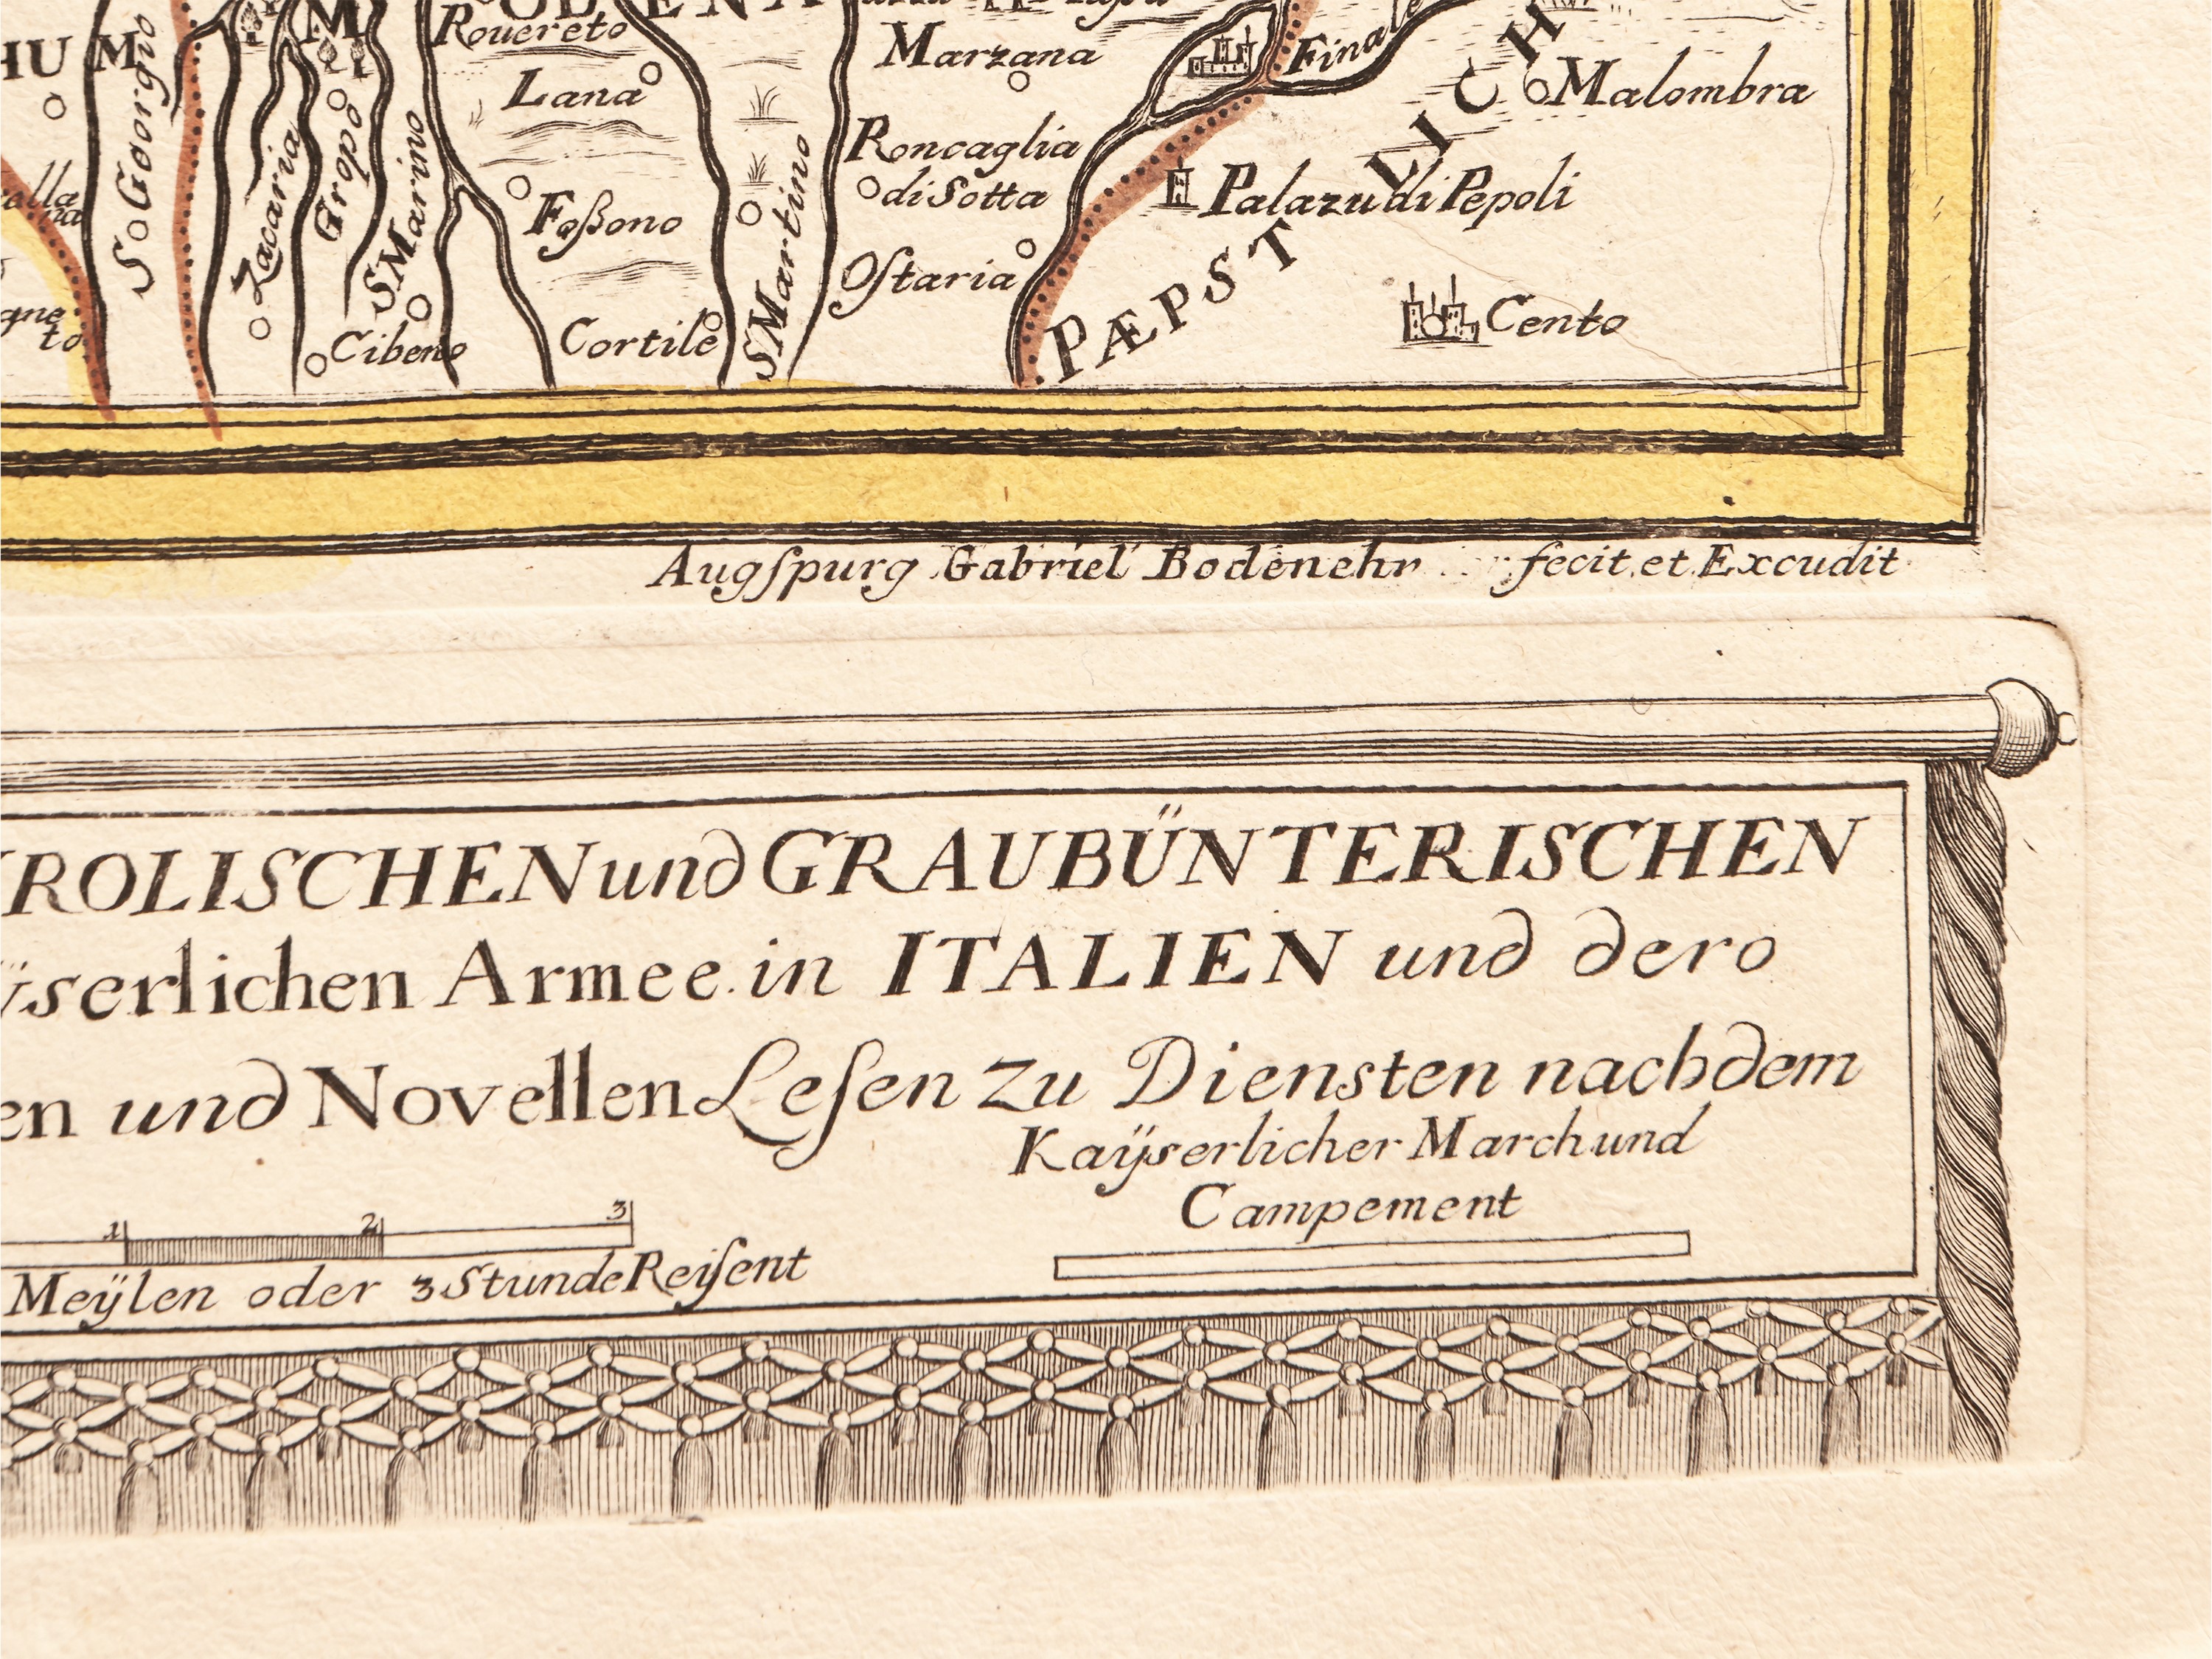 Rouereto
Marzana
Finale
HUM
M
Lana
Malombra
S Georgio
Gropo
S Marino
Zacaria
Roncaglia
di Sotta
Foßono
S Martino
Palazu di Pepoli
Oſtaria
PÆPSTLICH
Cento
Cibeno
Cortile
Augſpurg Gabriel Bodenehr fecit et Excudit
ROLISCHEN und GRAUBÜNTERISCHEN
ÿserlichen Armee in ITALIEN und dero
en und Novellen Leſen zu Diensten nachdem
Kaÿserlicher March und
Campement
1 2 3
Meÿlen oder 3 Stunde Reiſent